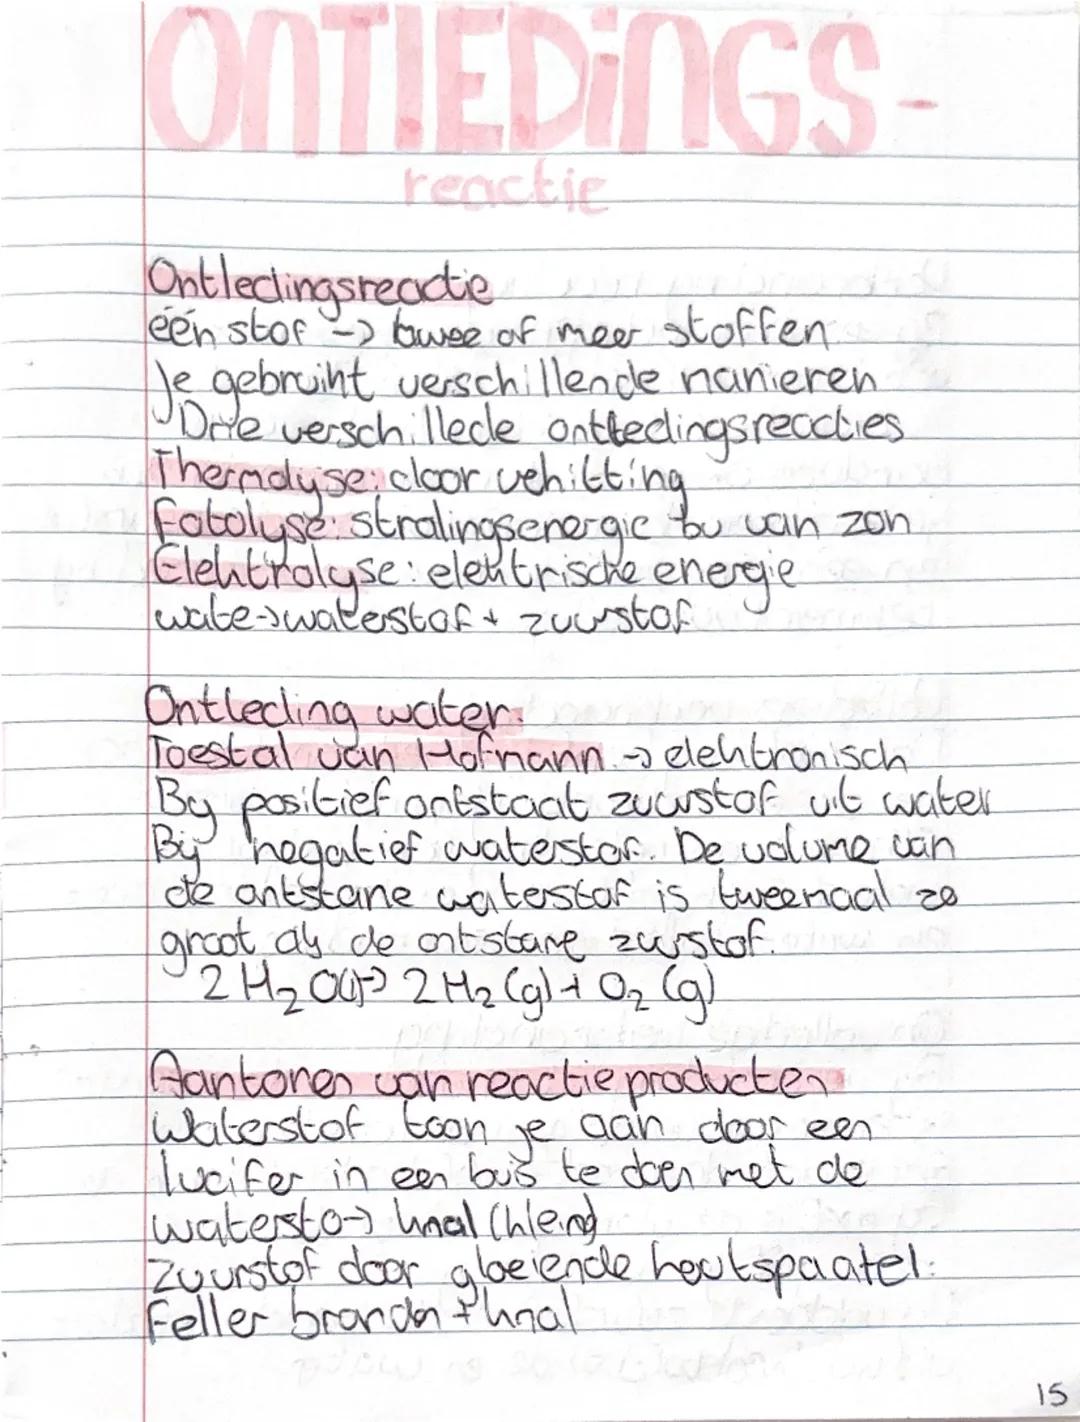 ONTLEDiNGS-
reactie
Ontledingsreactie
één stof -> twee of meer stoffen
Je gebruikt verschillende manieren
Drie verschillede ontledingsreacties
Thermolyse: door vehitting
Fotolyse: stralingsenergie bv van zon
Elektrolyse: elektrische energie
wate->waterstof + zuurstof
Ontleding water:
Toestal van Hofmann -> elektronisch
By positief ontstaat zuurstof uit water
Bij negatief waterstof. De volume van
de ontstane waterstof is tweemaal zo
groot als de ontstane zurstof.
2 H₂O(l)-> 2 H₂ (g) + O₂ (g)
Aantonen van reactieproducten
Waterstof toon je aan door een
lucifer in een buis te doen met de
watersto-> knal (klein)
Zuurstof door gloeiende houtspaatel:
Feller branden + knal
15